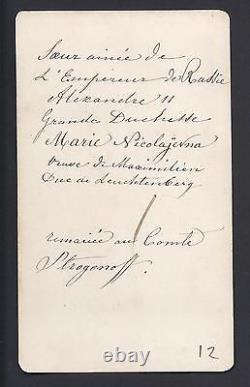 Sœur ainée de
L'Empereur de Russie
Alexandre II
Grande Duchesse
Marie Nicolajevna
veuve de Maximilien
Duc de Leuchtenberg
remariée au Comte
Strogonoff.
12